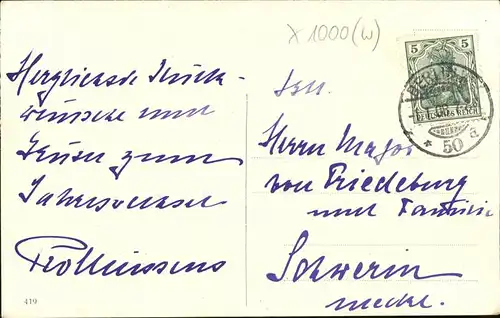 x 1000 (w)
5 5
DEUTSCHES REICH
BERLIN
* 50 a
Herzlichste Glück-
wünsche und
Grüsse zum
Jahreswechsel
419
Herrn Major
von Friedeburg
und Familie
Schwerin
Meckl.